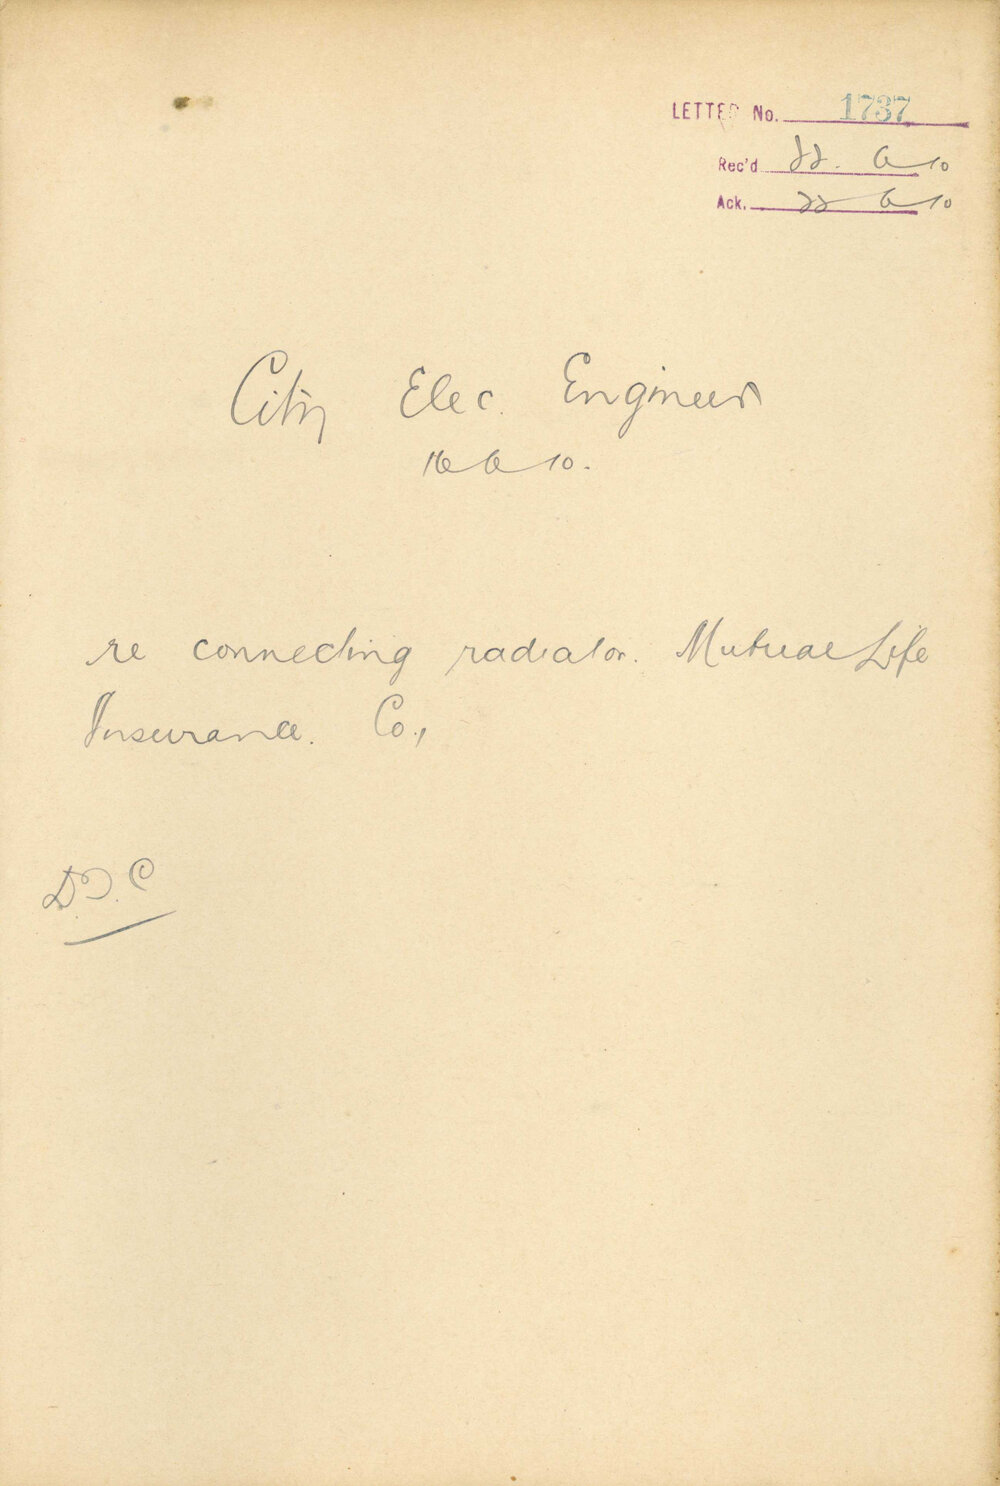 LETTER No. 1737
Rec'd 22. 6 10
Ack. 22 6 10
City Elec. Engineer
16 6 10.
re connecting radiator. Mutual Life
Insurance. Co.,